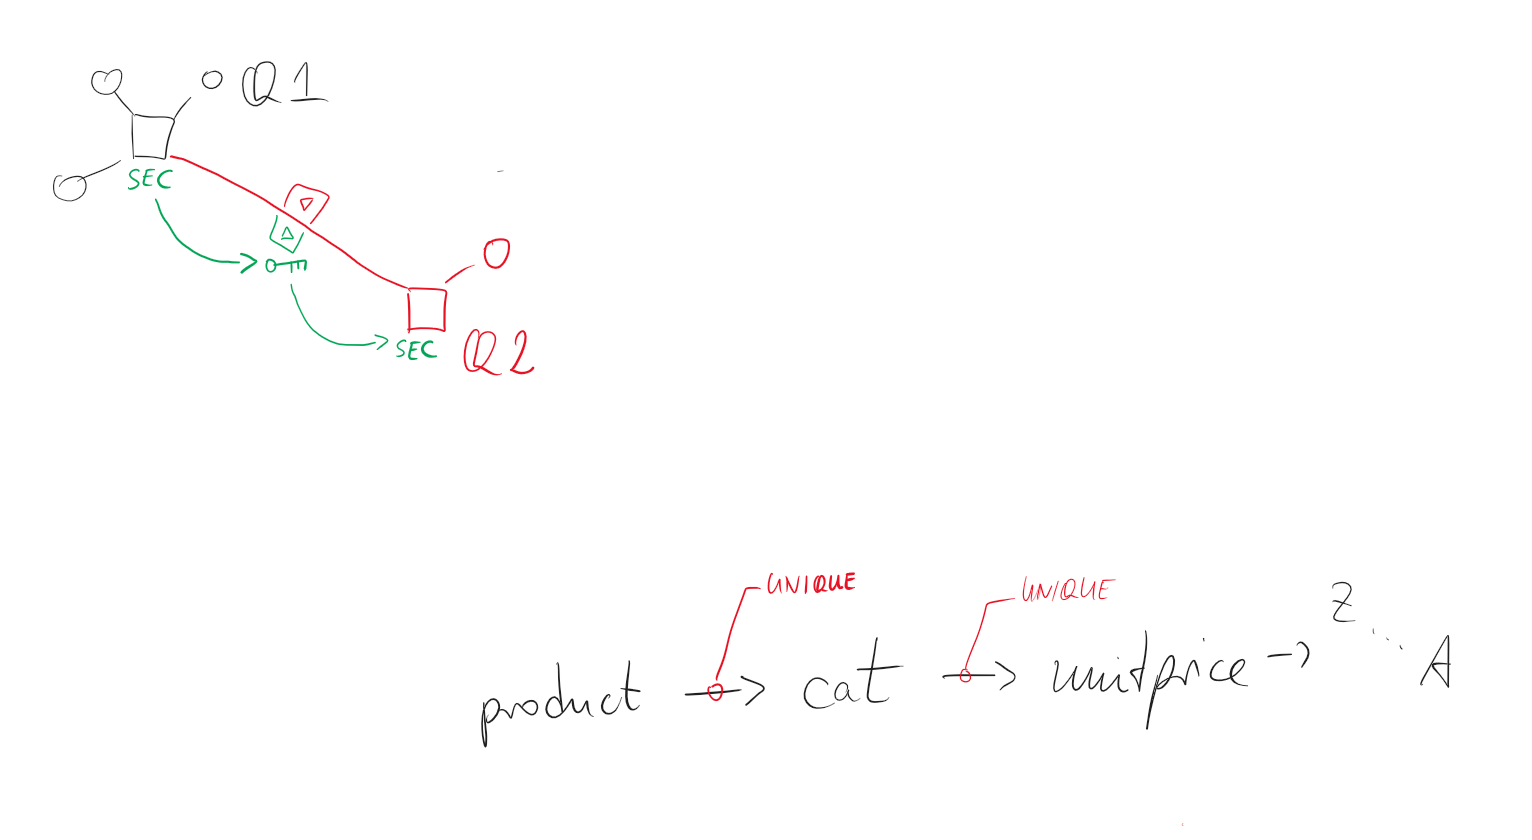 Q1
SEC
SEC
Q2
UNIQUE
UNIQUE
product → cat → unitprice → Z ... A